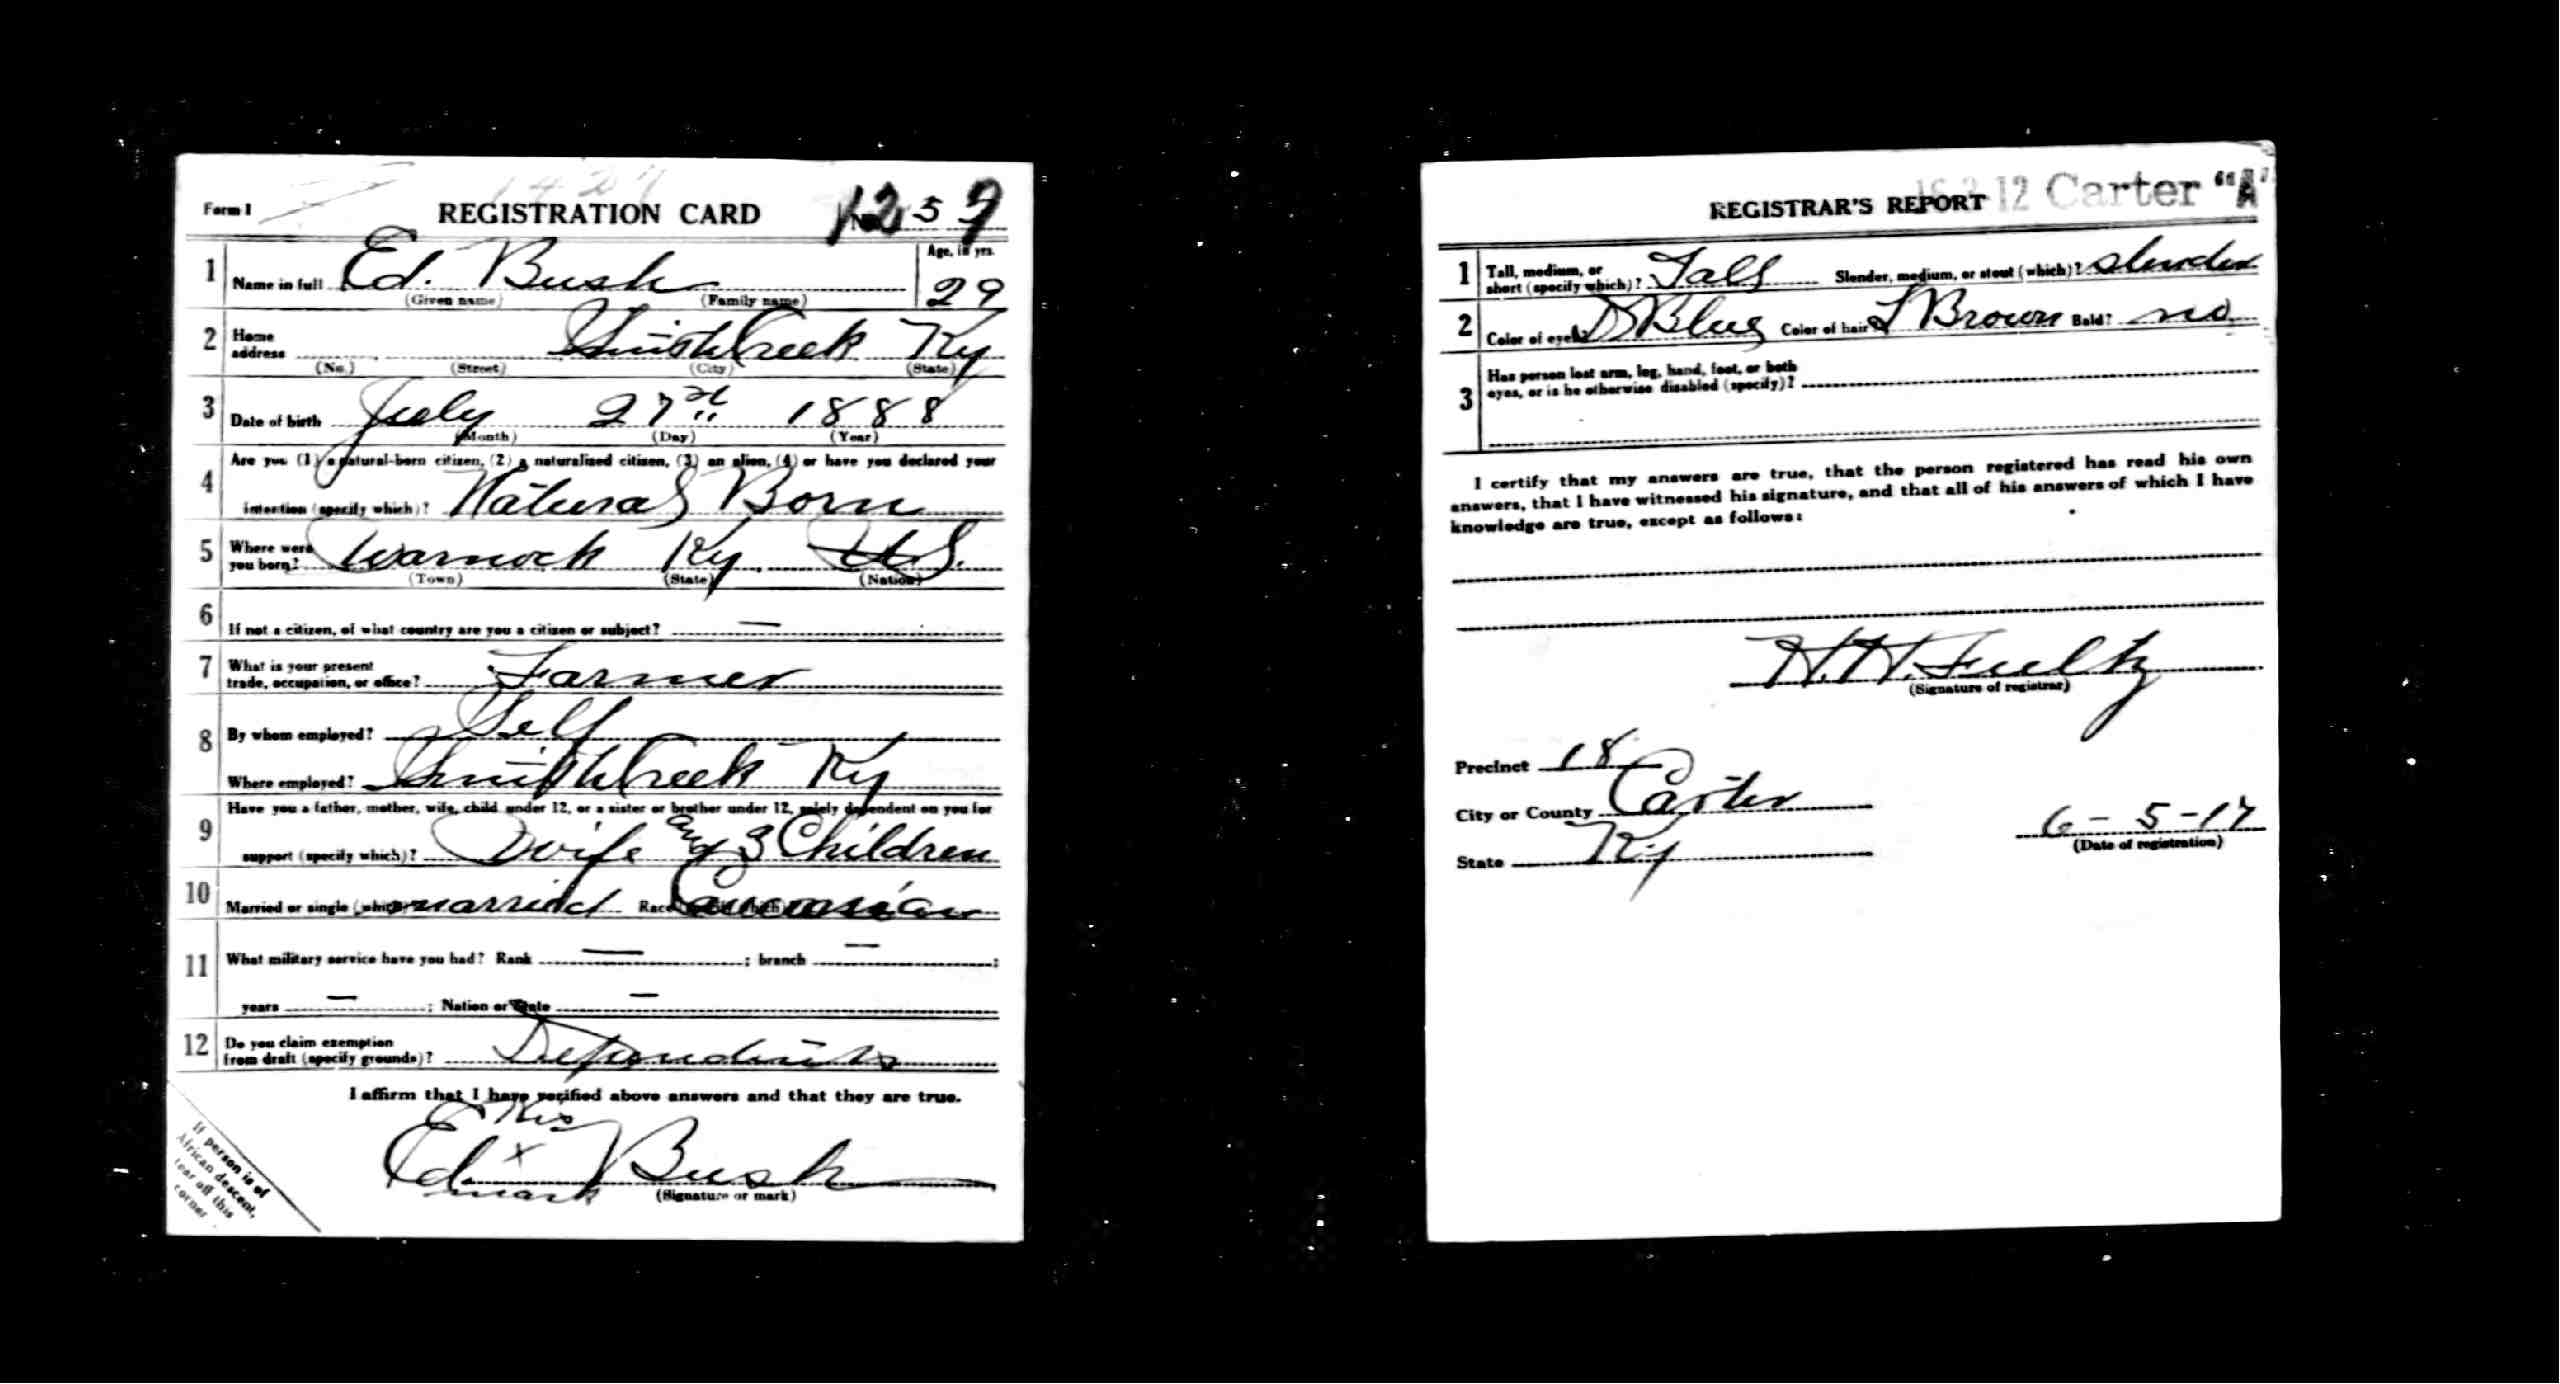 Form 1
REGISTRATION CARD
1 Name in full Ed. Bush Age, in yrs. 29
(Given name) (Family name)
2 Home address Smith Creek Ky
(No.) (Street) (City) (State)
3 Date of birth July 27 1888
(Month) (Day) (Year)
4 Are you (1) a natural-born citizen, (2) a naturalized citizen, (3) an alien, (4) or have you declared your
intention (specify which)? Natural Born
5 Where were you born? Warnock Ky U.S.
(Town) (State) (Nation)
6 If not a citizen, of what country are you a citizen or subject? —
7 What is your present
trade, occupation, or office? Farmer
8 By whom employed? Self
Where employed? Smith Creek Ky
9 Have you a father, mother, wife, child under 12, or a sister or brother under 12, solely dependent on you for
support (specify which)? Wife and 3 Children
10 Married or single (which)? married Race Caucasian
11 What military service have you had? Rank — ; branch — ;
years — ; Nation or State —
12 Do you claim exemption
from draft (specify grounds)? Dependents
I affirm that I have verified above answers and that they are true.
His
Ed. x Bush
mark (Signature or mark)
If person is of
African descent,
tear off this
corner
12 Carter "A"
REGISTRAR'S REPORT
1 Tall, medium, or
short (specify which)? Tall Slender, medium, or stout (which)? slender
2 Color of eyes? D Blue Color of hair? L Brown Bald? no
3 Has person lost arm, leg, hand, foot, or both
eyes, or is he otherwise disabled (specify)?
I certify that my answers are true, that the person registered has read his own
answers, that I have witnessed his signature, and that all of his answers of which I have
knowledge are true, except as follows:
H. H. Fultz
(Signature of registrar)
Precinct 18
City or County Carter
State Ky
6-5-17
(Date of registration)